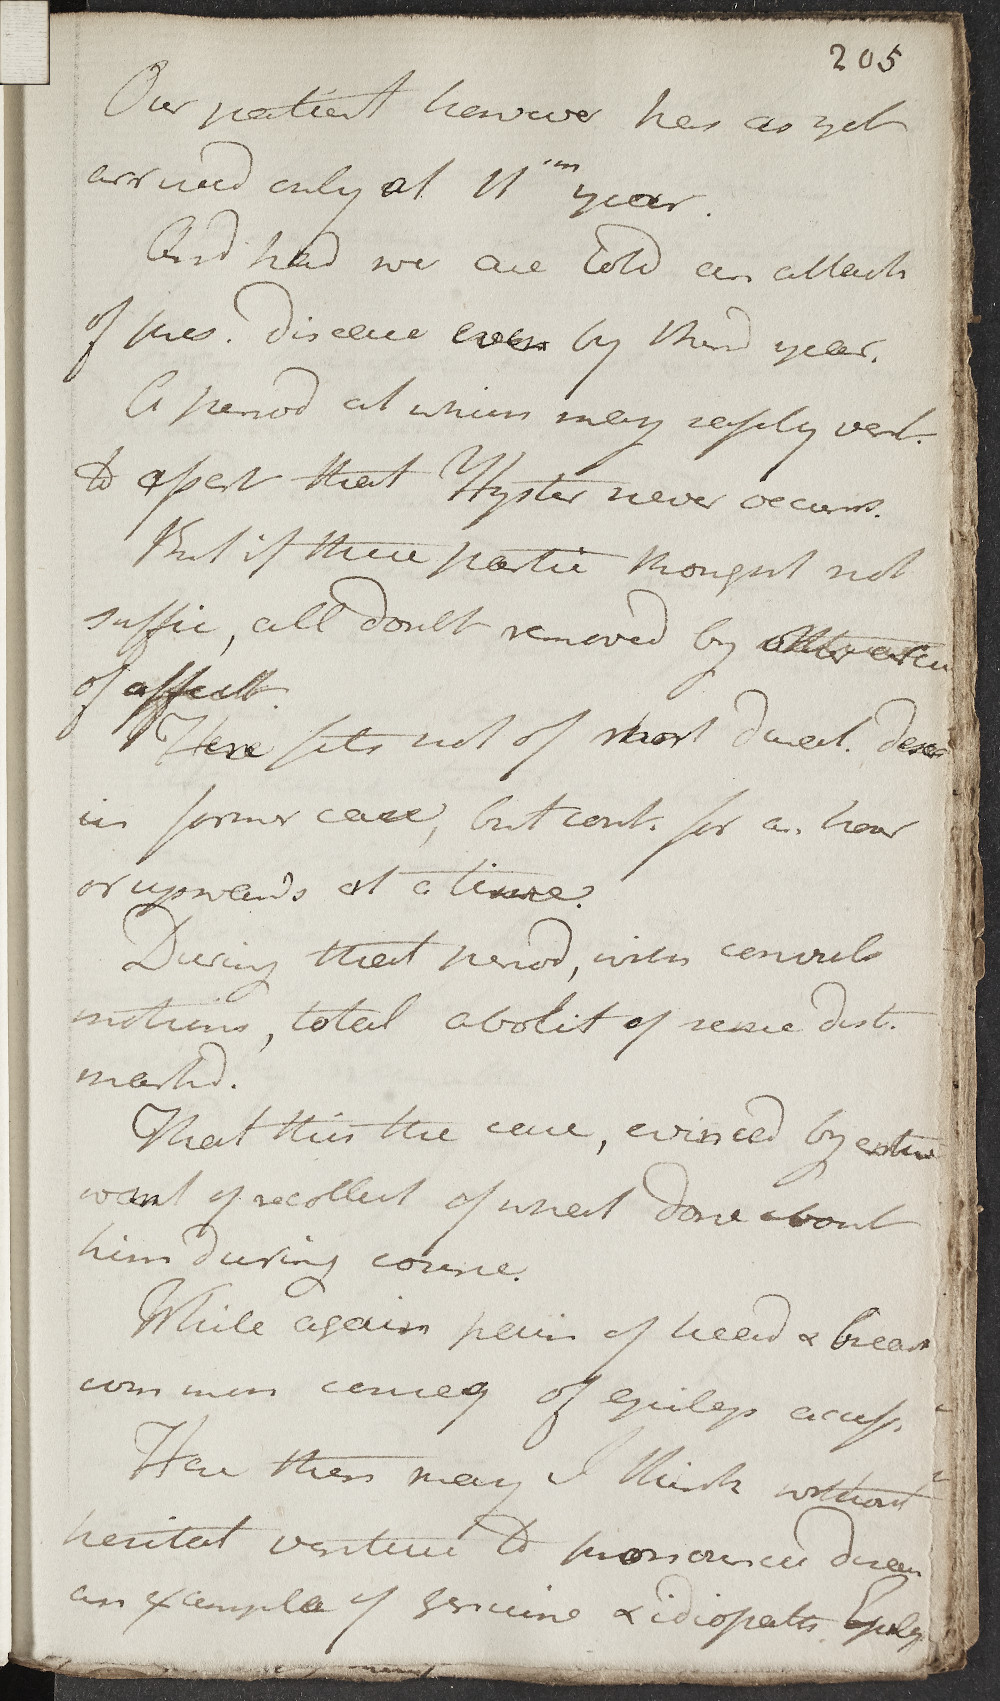 205
Our patient however has as yet
arrived only at 11th year.
And had we are told an attack
of pres. disease even by third year.
A period at which may safely vent.
to assert that Hyster never occurs.
But if these partic thought not
suffic, all doubt removed by
of
Here fits not of short durat.
in former case, but cont. for an hour
or upwards at a time.
During that period, with convuls
motions, total abolit of sense dist.
marked.
That this the case, evinced by entire
want of recollect of what done about
him during course.
While again pain of head & breast
common conseq of epilep access.
Here then may I think without
hesitat venture to pronounce disease
an example of genuine & idiopath Epilep